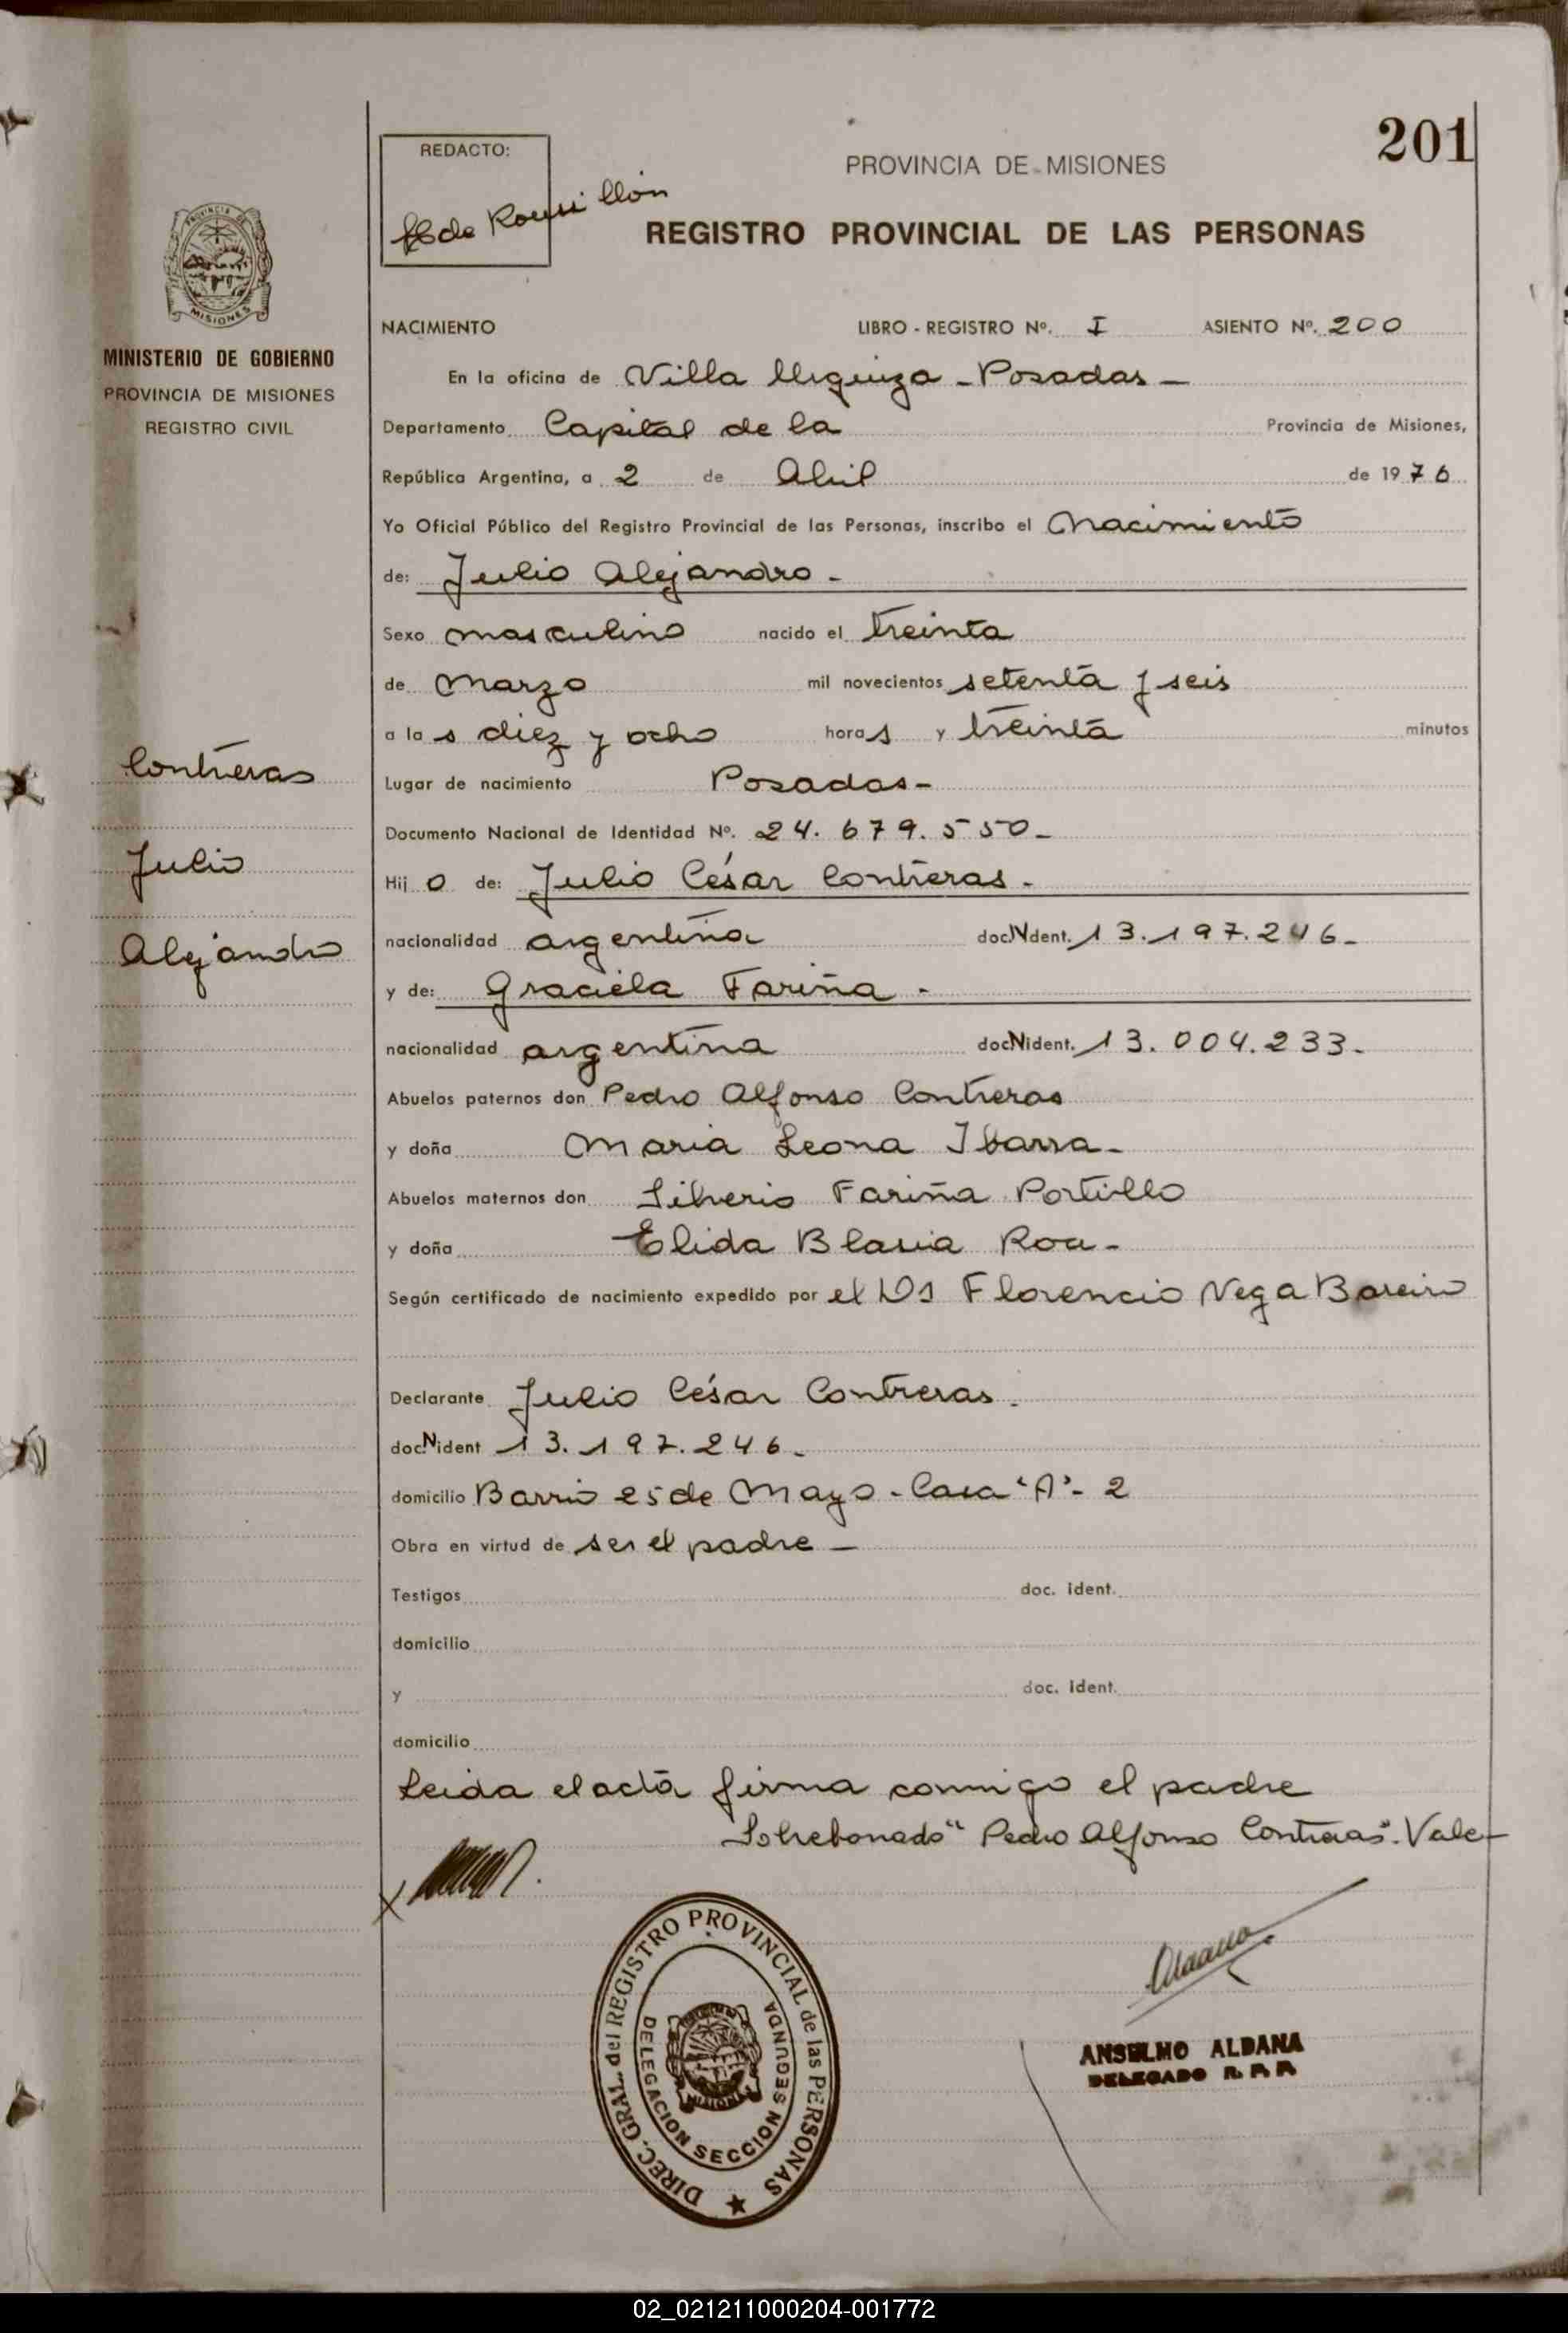 201
REDACTO:
de Rousillón
PROVINCIA DE MISIONES
REGISTRO PROVINCIAL DE LAS PERSONAS
PROVINCIA DE MISIONES
MINISTERIO DE GOBIERNO
PROVINCIA DE MISIONES
REGISTRO CIVIL
Contreras
Julio
Alejandro
NACIMIENTO LIBRO - REGISTRO Nº. I ASIENTO Nº. 200
En la oficina de Villa Urquiza - Posadas -
Departamento Capital de la Provincia de Misiones,
República Argentina, a 2 de Abril de 1976
Yo Oficial Público del Registro Provincial de las Personas, inscribo el Nacimiento
de: Julio Alejandro -
Sexo masculino nacido el treinta
de Marzo mil novecientos setenta y seis
a las diez y ocho horas y treinta minutos
Lugar de nacimiento Posadas -
Documento Nacional de Identidad Nº. 24.679.550 -
Hijo de: Julio César Contreras -
nacionalidad argentina doc.N.ident. 13.197.246 -
y de: Graciela Fariña -
nacionalidad argentina doc.N.ident. 13.004.233 -
Abuelos paternos don Pedro Alfonso Contreras
y doña Maria Leona Ibarra -
Abuelos maternos don Silverio Fariña Portillo
y doña Elida Blasia Roa -
Según certificado de nacimiento expedido por el Dr Florencio Vega Bareiro
Declarante Julio César Contreras.
doc.N.ident 13.197.246 -
domicilio Barrio 25 de Mayo - Casa "A" - 2
Obra en virtud de ser el padre -
Testigos doc. ident.
domicilio
y doc. ident.
domicilio
Leida el acta firma conmigo el padre
Sobrebonado "Pedro Alfonso Contreras". Vale -
DIREC. GRAL. del REGISTRO PROVINCIAL de las PERSONAS
DELEGACION SECCION SEGUNDA
MISIONES
Aldana
ANSELMO ALDANA
DELEGADO R. P. P.
02_021211000204-001772